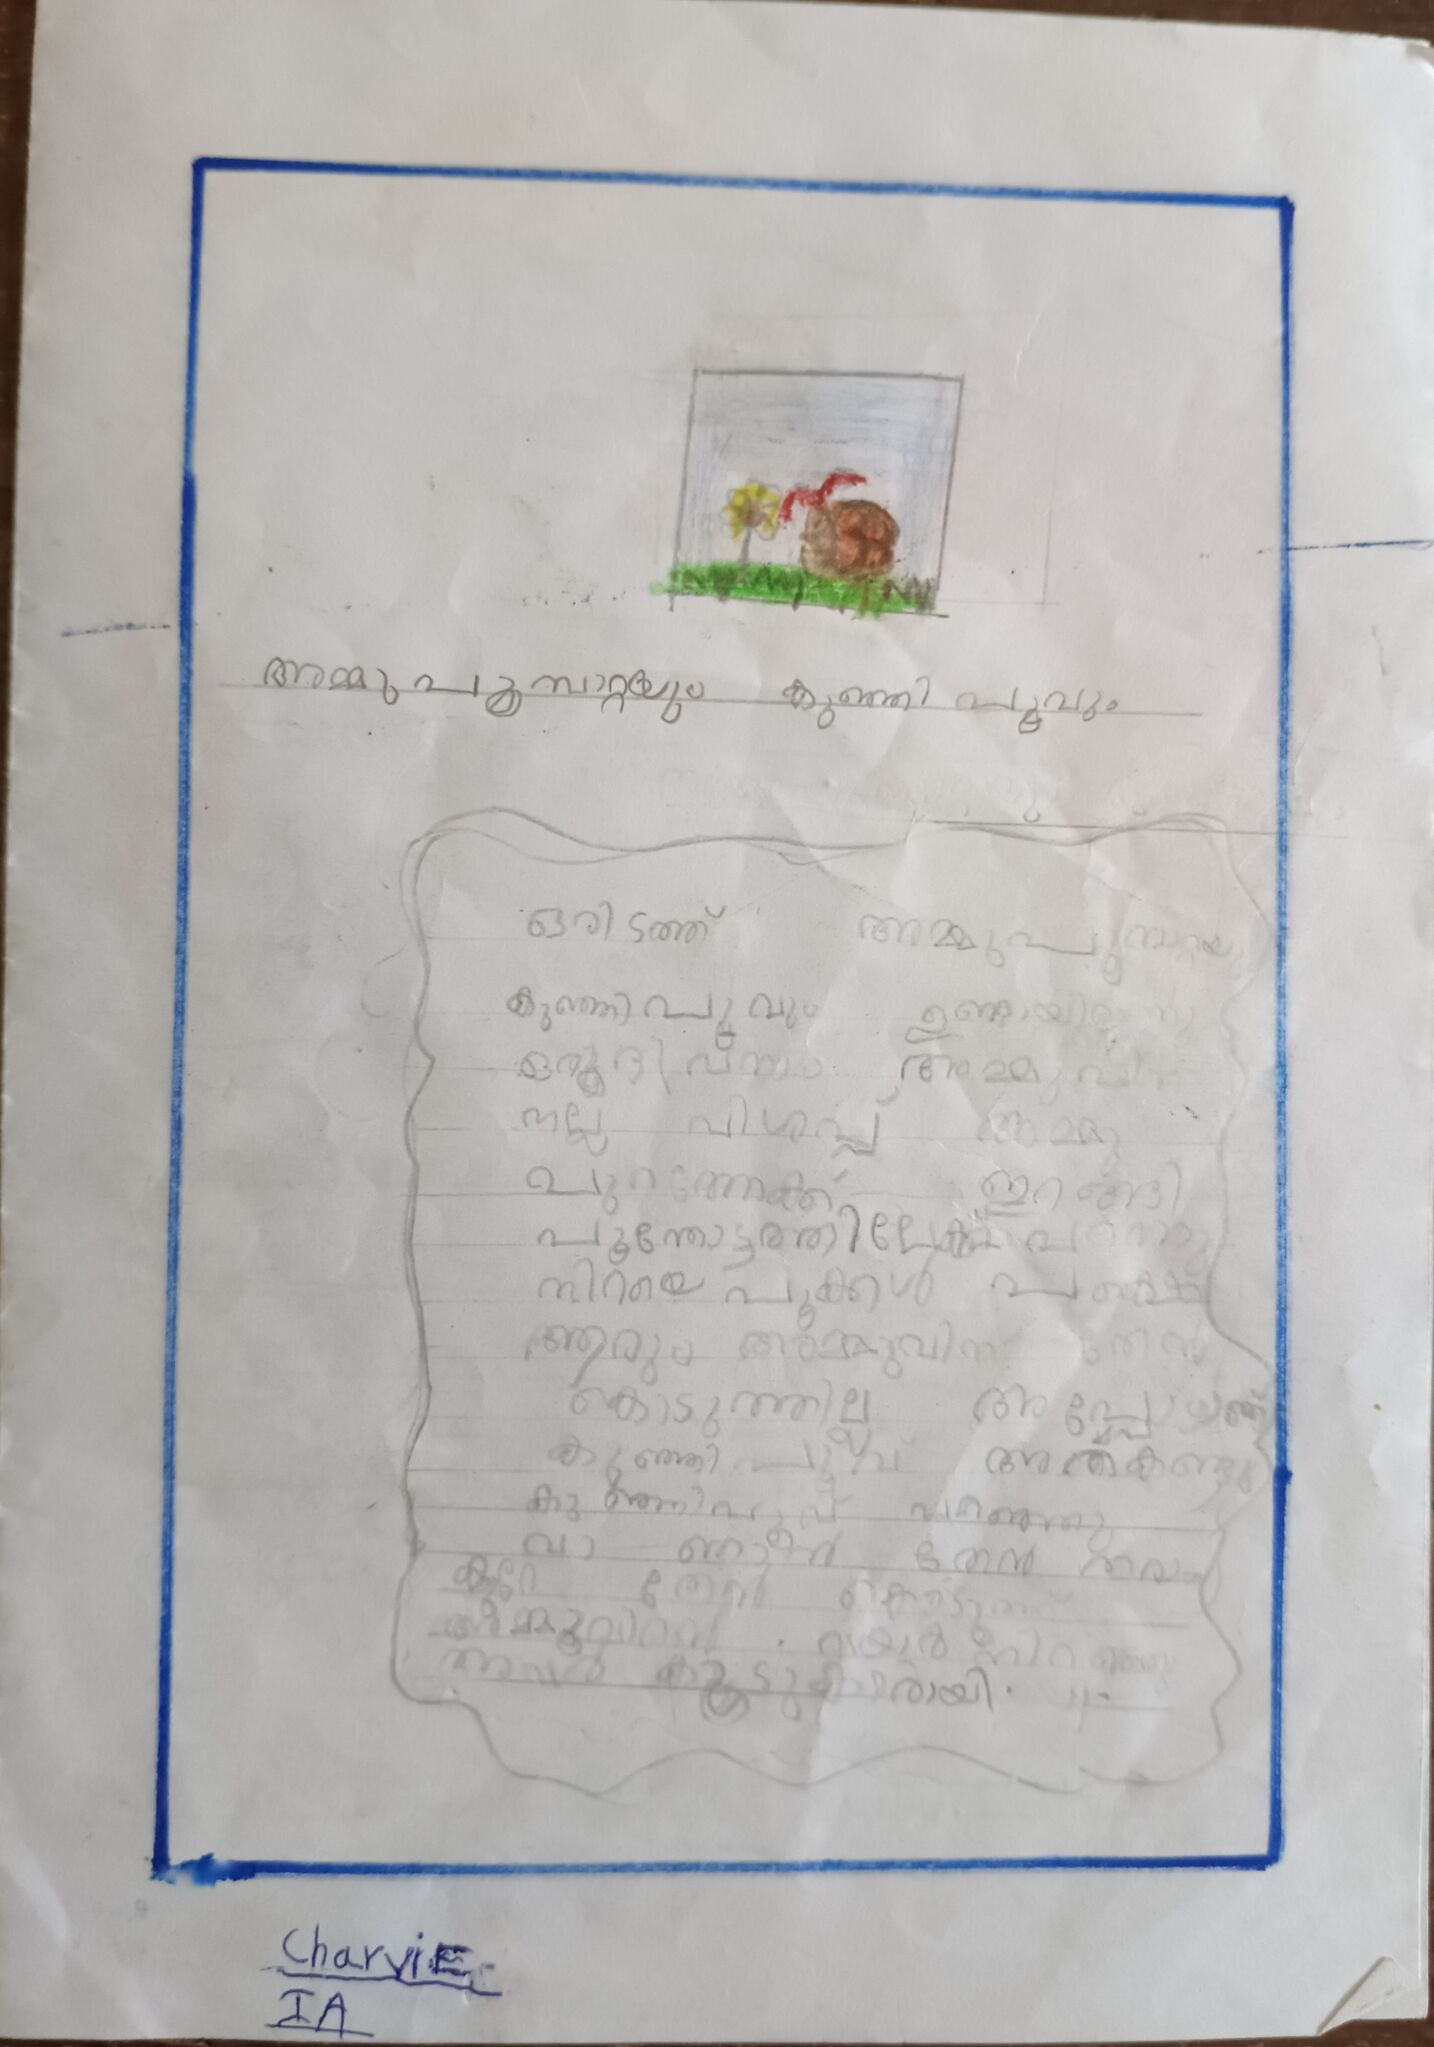 അമ്മു പൂമ്പാറ്റയും കുഞ്ഞി പൂവും
ഒരിടത്ത് അമ്മുപൂമ്പാറ്റയു
കുഞ്ഞി പൂവും ഉണ്ടായിരുന്നു
ഒരു ദിവസം അമ്മുവിന
നല്ല വിശപ്പ് അമ്മു
പുറത്തേക്ക് ഇറങ്ങി
പൂന്തോട്ടത്തിലേക്ക് പറന്നു
നിറയെ പൂക്കൾ പക്ഷെ
ആരും അമ്മുവിന തേൻ
കൊടുത്തില്ല അപ്പോഴാണ്
കുഞ്ഞി പൂവ് അത്കണ്ടു
കുഞ്ഞിപൂവ് പറഞ്ഞു
വാ ഞാൻ തേൻ തരാം
കുറേ തേൻ കൊടുത്ത്
അമ്മുവിൻ വയർ നിറഞ്ഞു
അവർ കൂട്ടുകാരായി.
CharviE.
IA